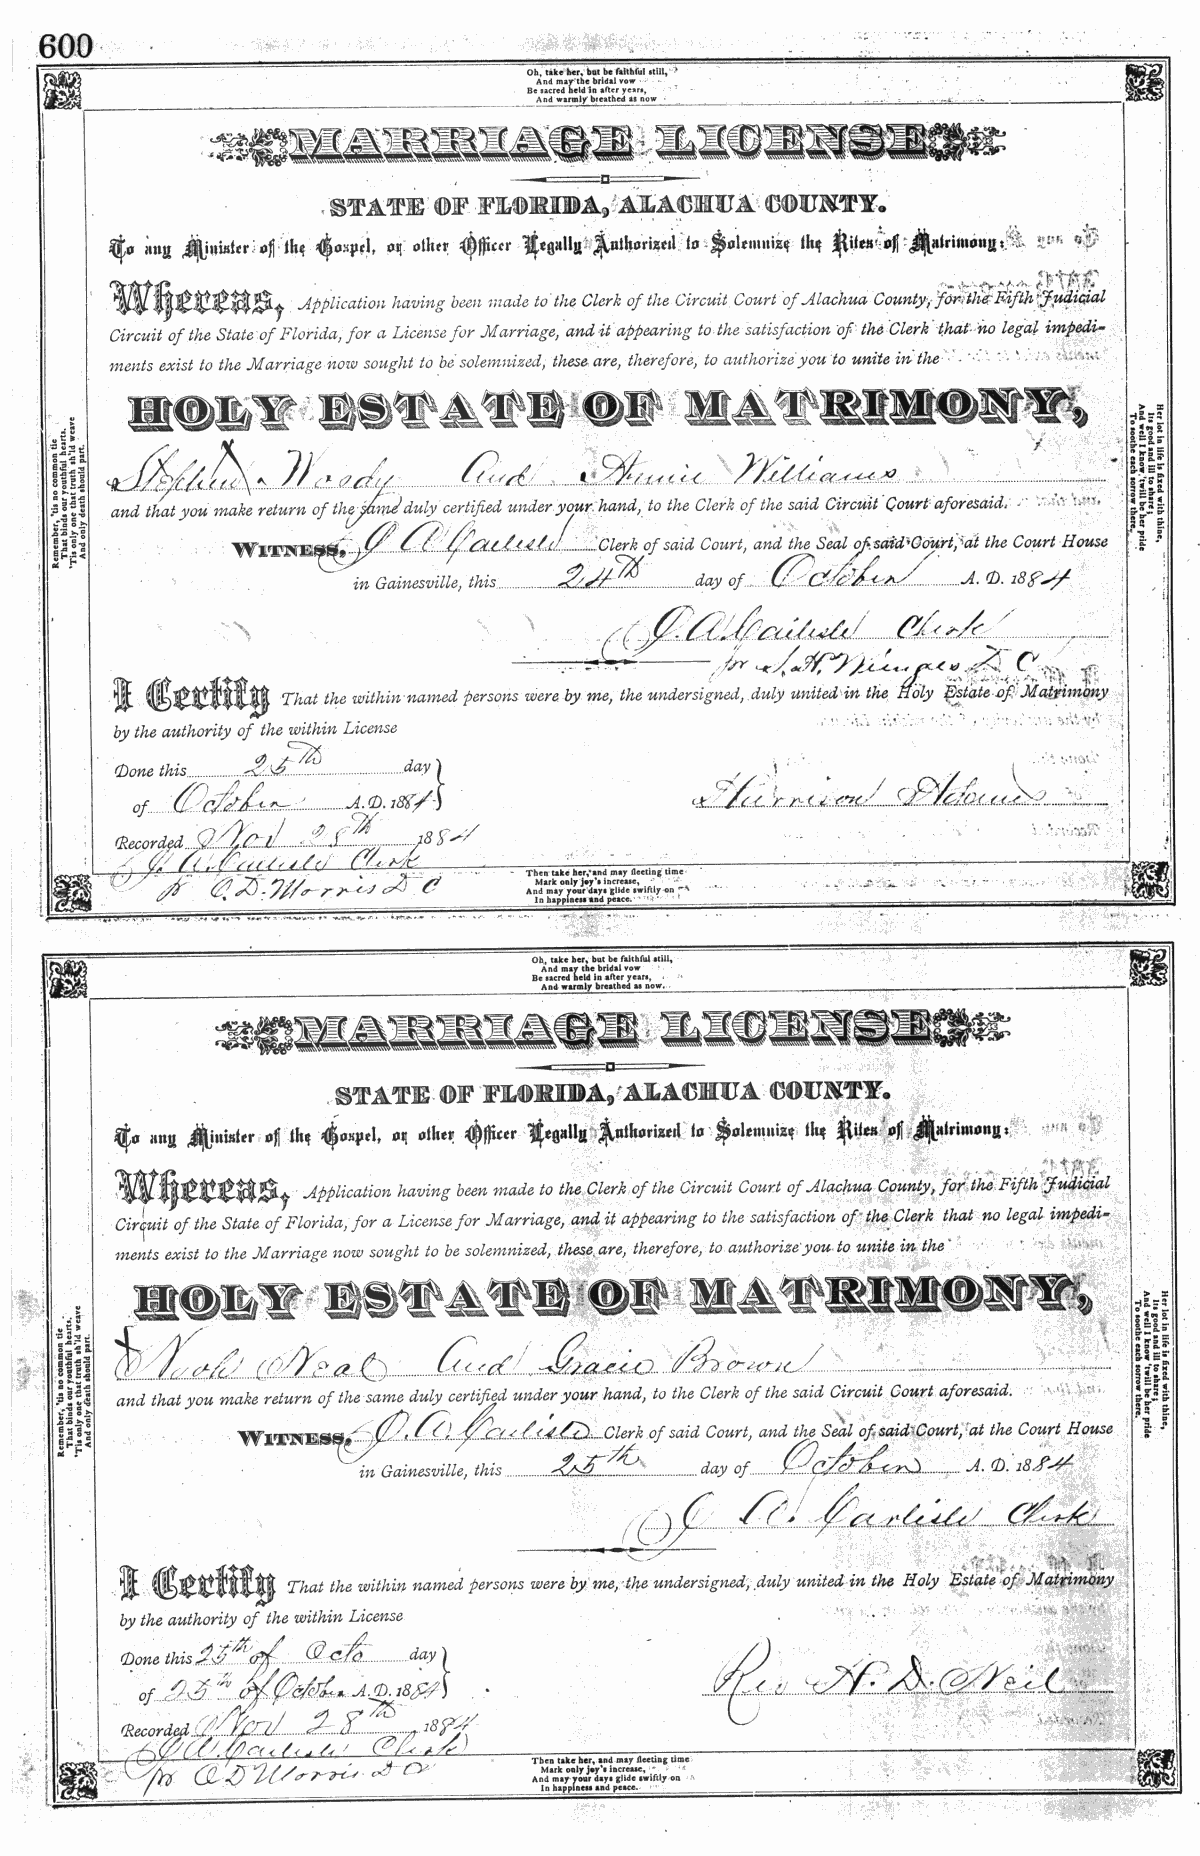 600
Oh, take her, but be faithful still,
And may the bridal vow
Be sacred held in after years,
And warmly breathed as now
MARRIAGE LICENSE
STATE OF FLORIDA, ALACHUA COUNTY.
To any Minister of the Gospel, or other Officer Legally Authorized to Solemnize the Rites of Matrimony:
Whereas, Application having been made to the Clerk of the Circuit Court of Alachua County, for the Fifth Judicial
Circuit of the State of Florida, for a License for Marriage, and it appearing to the satisfaction of the Clerk that no legal impedi-
ments exist to the Marriage now sought to be solemnized, these are, therefore, to authorize you to unite in the
HOLY ESTATE OF MATRIMONY,
Stephen Woody And Annie Williams
and that you make return of the same duly certified under your hand, to the Clerk of the said Circuit Court aforesaid.
WITNESS, J A Carlisle Clerk of said Court, and the Seal of said Court, at the Court House
in Gainesville, this 24th day of October A. D. 1884
J. A. Carlisle Clerk
pr S. H. D C
I Certify That the within named persons were by me, the undersigned, duly united in the Holy Estate of Matrimony
by the authority of the within License
Done this 25th day
of October A. D. 1884
Harrison Adams
Recorded Nov 28th 1884
J. A. Carlisle Clerk
pr C. D. Morris D C
Then take her, and may fleeting time
Mark only joy's increase,
And may your days glide swiftly on
In happiness and peace.
Remember, 'tis no common tie
That binds our youthful hearts.
'Tis only one that truth sh'ld weave
And only death should part.
Her lot in life is fixed with thine,
Its good and ill to share;
And well I know 'twill be her pride
To soothe each sorrow there.
Oh, take her, but be faithful still,
And may the bridal vow
Be sacred held in after years,
And warmly breathed as now.
MARRIAGE LICENSE
STATE OF FLORIDA, ALACHUA COUNTY.
To any Minister of the Gospel, or other Officer Legally Authorized to Solemnize the Rites of Matrimony:
Whereas, Application having been made to the Clerk of the Circuit Court of Alachua County, for the Fifth Judicial
Circuit of the State of Florida, for a License for Marriage, and it appearing to the satisfaction of the Clerk that no legal impedi-
ments exist to the Marriage now sought to be solemnized, these are, therefore, to authorize you to unite in the
HOLY ESTATE OF MATRIMONY,
X Noah Neal And Gracie Brown
and that you make return of the same duly certified under your hand, to the Clerk of the said Circuit Court aforesaid.
WITNESS, J. A. Carlisle Clerk of said Court, and the Seal of said Court, at the Court House
in Gainesville, this 25th day of October A. D. 1884
J A. Carlisle Clerk
I Certify That the within named persons were by me, the undersigned, duly united in the Holy Estate of Matrimony
by the authority of the within License
Done this 25th of Octo day
of 25th of October A. D. 1884
Rev H. D. Neil
Recorded Nov 28th 1884
J A. Carlisle Clerk
pr C D Morris D C
Then take her, and may fleeting time
Mark only joy's increase,
And may your days glide swiftly on
In happiness and peace.
Remember, 'tis no common tie
That binds our youthful hearts.
'Tis only one that truth sh'ld weave
And only death should part.
Her lot in life is fixed with thine,
Its good and ill to share;
And well I know 'twill be her pride
To soothe each sorrow there.